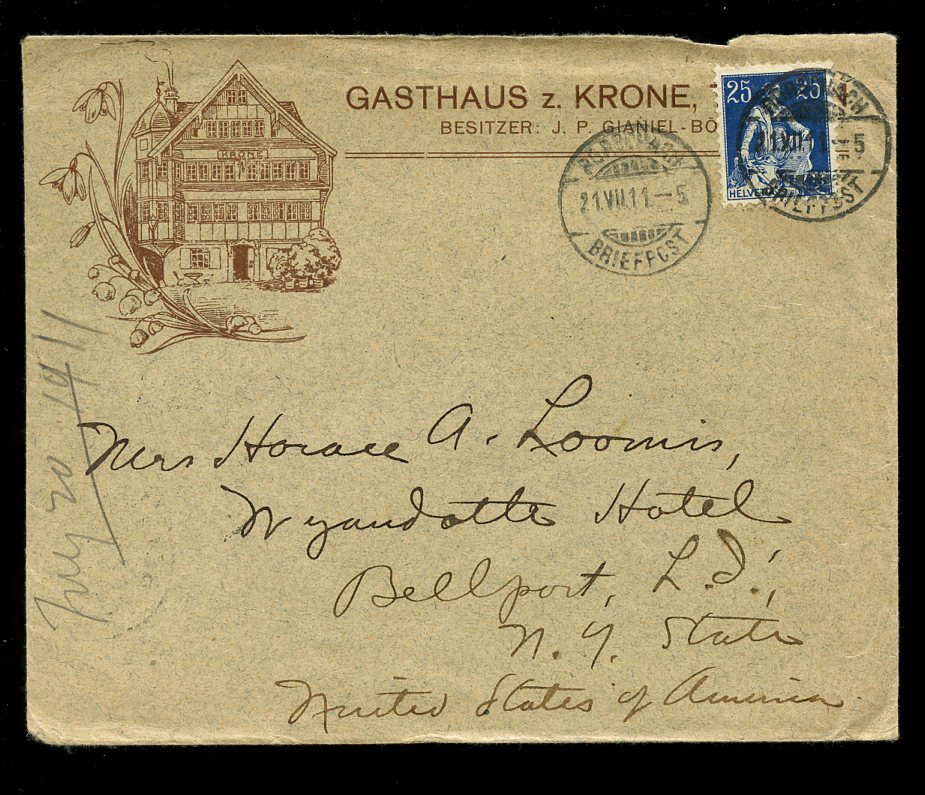 GASTHAUS z. KRONE,
BESITZER: J. P. GIANIEL-BÖ
KRONE
25 25
HELVE
21.VII.11.–5
BRIEFPOST
21.VII.11.–5
BRIEFPOST
July 20 1911
Mrs Horace A. Loomis,
Wyandotte Hotel
Bellport, L.I.,
N. Y. State
United States of America